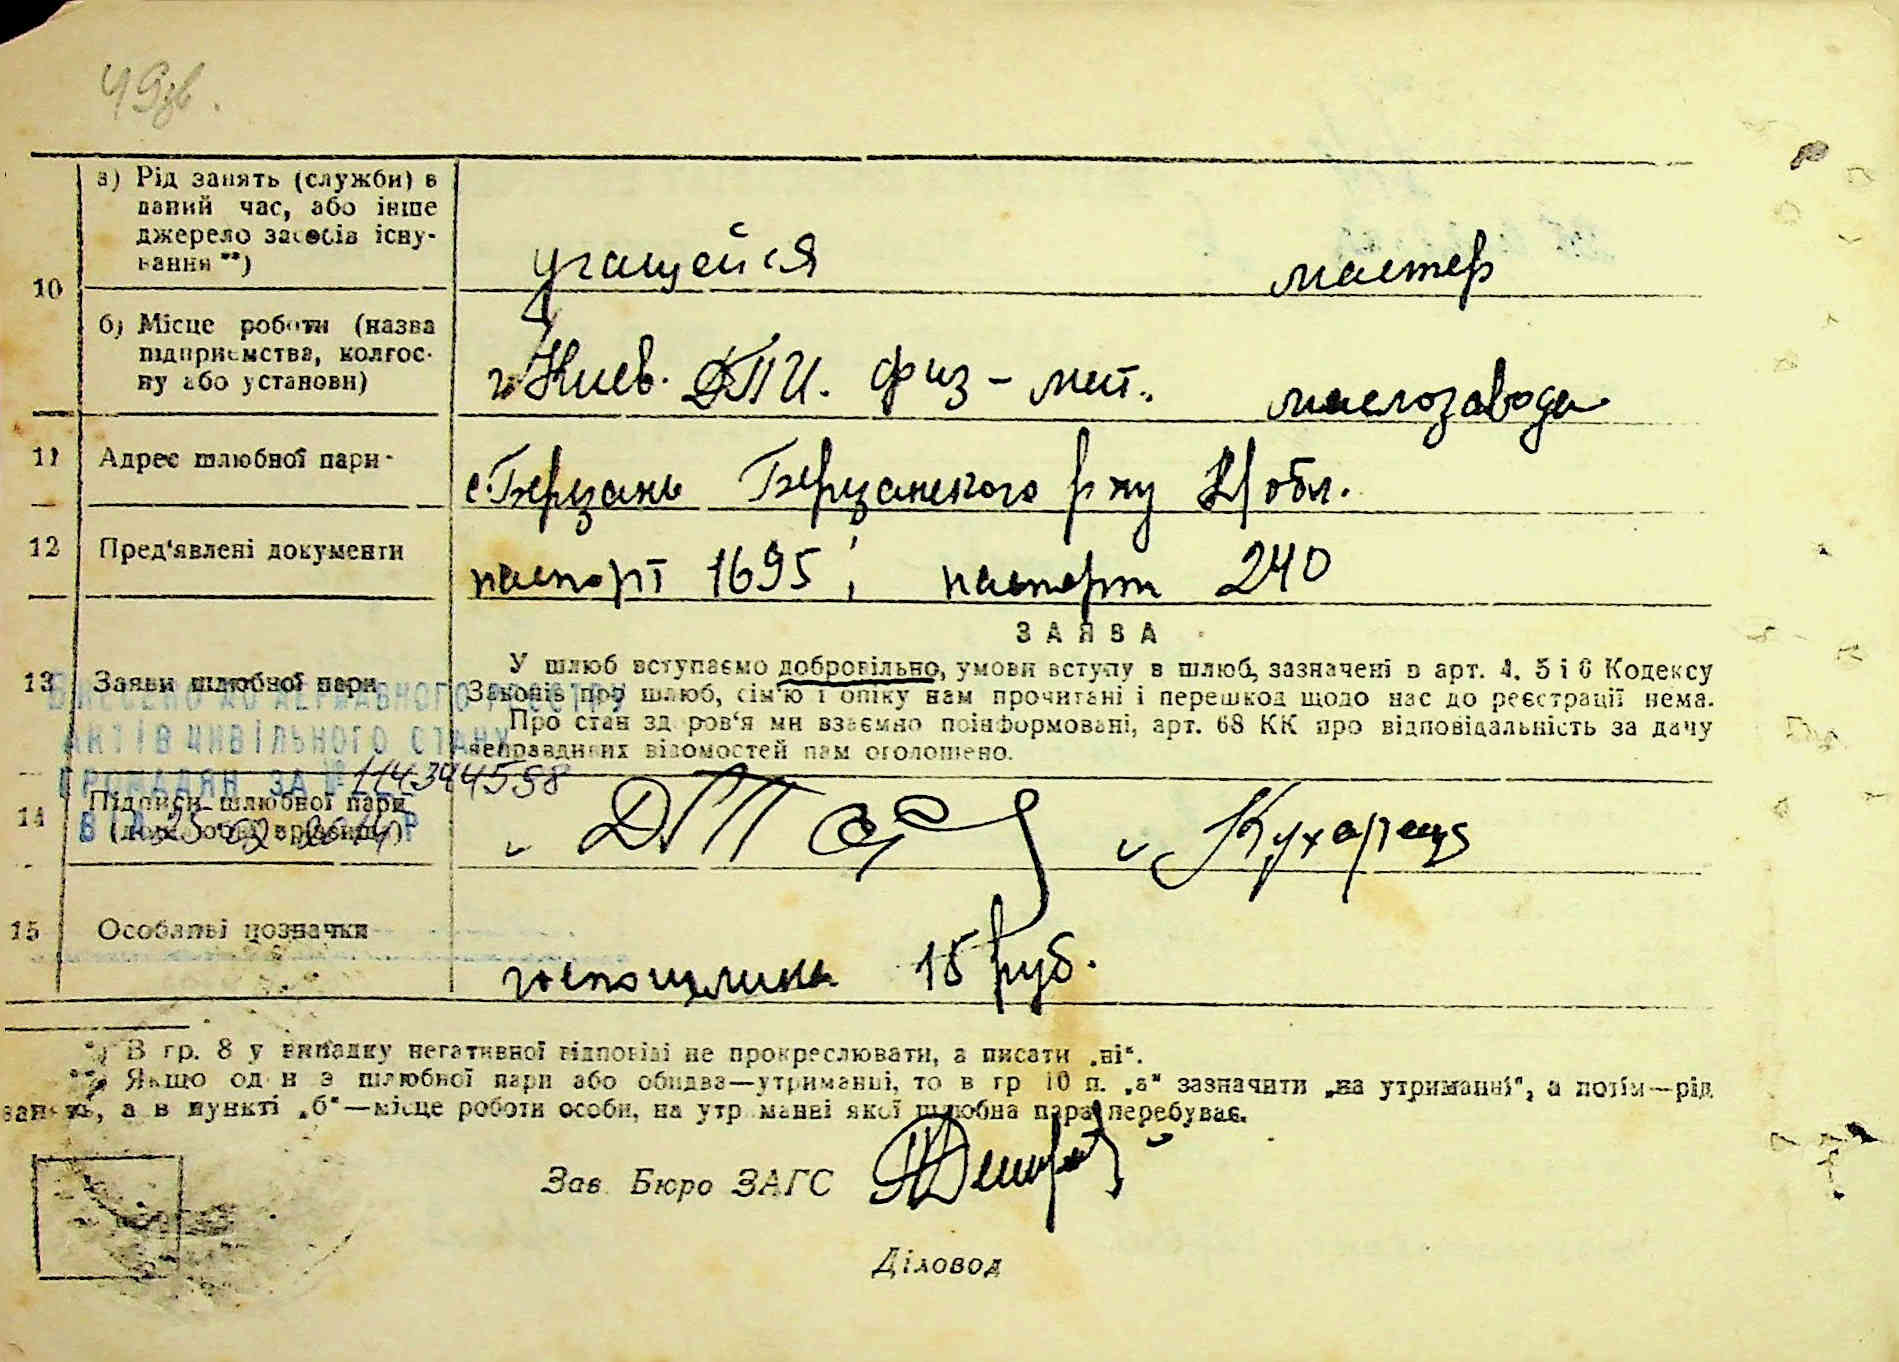 49зв.
а) Рід занять (служби) в
даний час, або інше
джерело засобів існу-
вання **)
учащейся мастер
10
б) Місце роботи (назва
підприємства, колгос-
пу або установи)
г. Киев. ПИ. физ - мат. маслозавода
11 Адрес шлюбної пари
с. Березань Березанского р-ну обл.
12 Пред'явлені документи
паспорт 1695; паспорт 240
ЗАЯВА
13 Заяви шлюбної пари
У шлюб вступаємо добровільно, умови вступу в шлюб, зазначені в арт. 4, 5 і 6 Кодексу
Законів про шлюб, сім'ю і опіку нам прочитані і перешкод щодо нас до реєстрації нема.
Про стан здоров'я ми взаємно поінформовані, арт. 68 КК про відповідальність за дачу
неправдивих відомостей нам оголошено.
ВНЕСЕНО ДО ДЕРЖАВНОГО РЕЄСТРУ
АКТІВ ЦИВІЛЬНОГО СТАНУ
ГРОМАДЯН ЗА №
14 Підписи шлюбної пари
Кухаренко
15 Особливі позначки
госпошлина 15 руб.
*) В гр. 8 у випадку негативної відповіді не прокреслювати, а писати „ні“.
**) Якщо один з шлюбної пари або обидва—утриманці, то в гр 10 п. „а“ зазначити „на утриманні“, а потім—рід
занять, а в пункті „б“—місце роботи особи, на утриманні якої шлюбна пара перебуває.
Зав. Бюро ЗАГС
Діловод